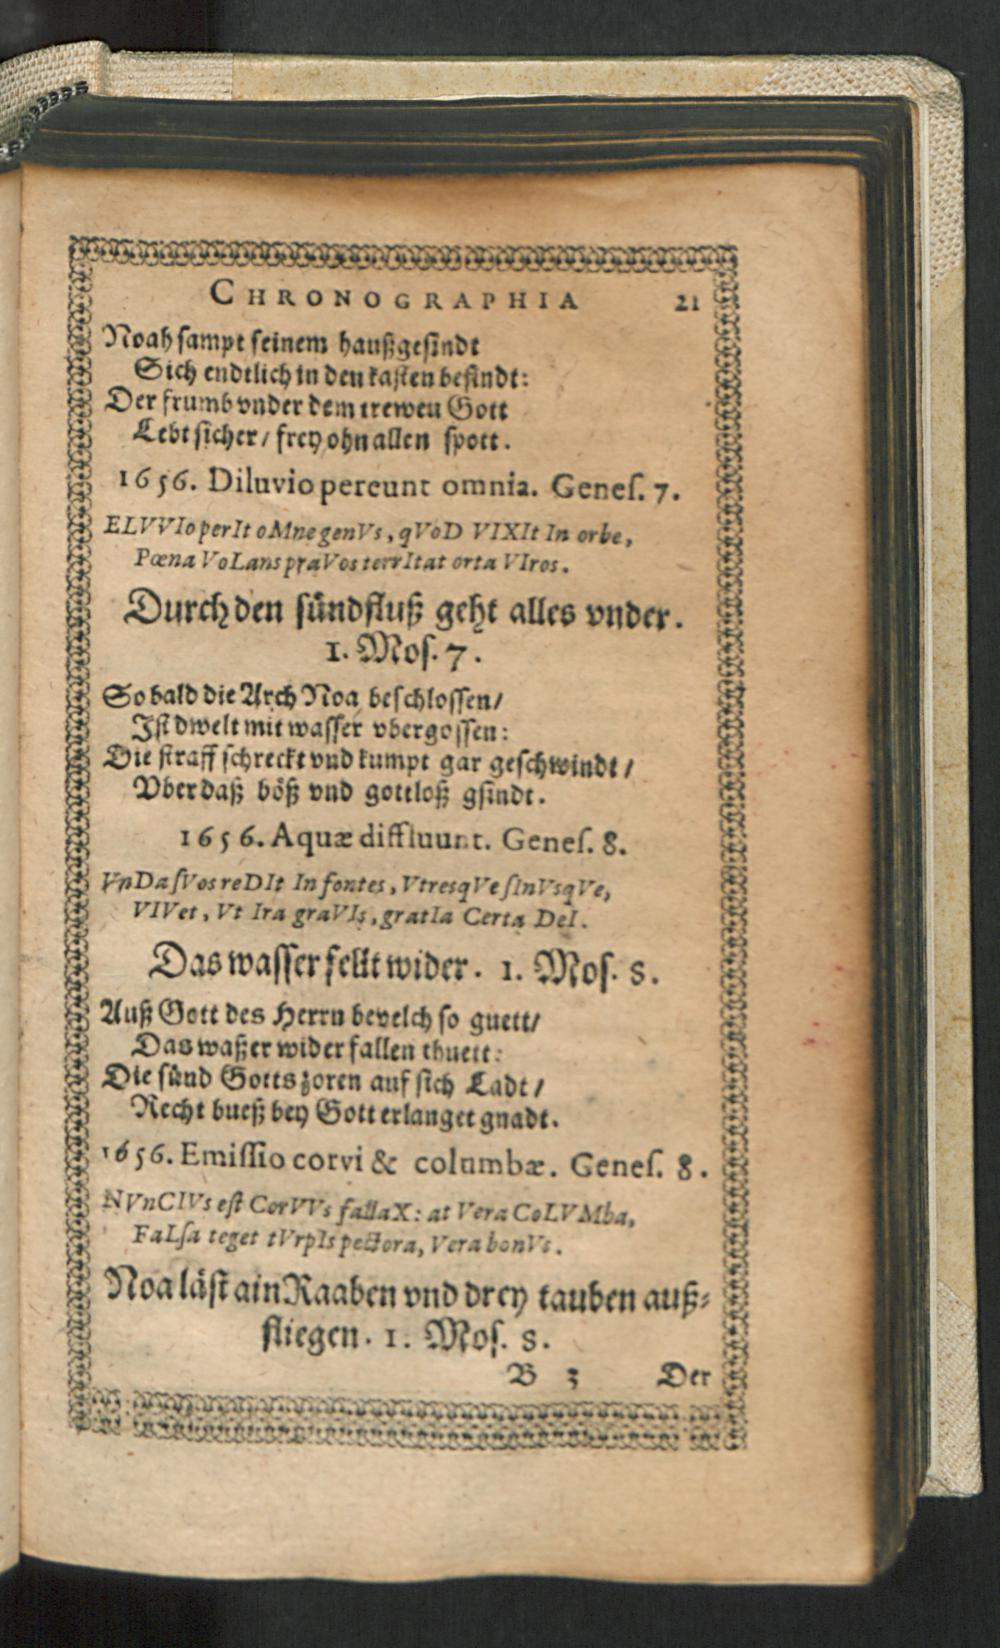 CHRONOGRAPHIA 21
Noah sampt seinem haußgesindt
Sich endtlich in den kasten befindt:
Der frumb vnder dem trewen Gott
Lebt sicher / frey ohn allen spott.
1656. Diluvio pereunt omnia. Genes. 7.
ELVVIo perIt oMne genVs, qVoD VIXIt In orbe,
Pœna VoLans praVos terrItat orta VIros.
Durch den sündfluß geht alles vnder.
1. Mos. 7.
So bald die Arch Noa beschlossen /
Ist dwelt mit wasser vbergossen:
Die straff schreckt vnd kumpt gar geschwindt /
Vber daß böß vnd gottloß gsindt.
1656. Aquæ diffluunt. Genes. 8.
VnDa sVos reDIt In fontes, VtresqVe sInVsqVe,
VIVet, Vt Ira graVIs, gratIa Certa DeI.
Das wasser fellt wider. 1. Mos. 8.
Auß Gott des Herrn bevelch so guett /
Das waßer wider fallen thuett:
Die sünd Gotts zoren auf sich Ladt /
Recht bueß bey Gott erlanget gnadt.
1656. Emissio corvi & columbæ. Genes. 8.
NVnCIVs est CorVVs fallaX: at Vera CoLVMba,
FaLsa teget tVrpIs pectora, Vera bonVs.
Noa läst ain Raaben vnd drey tauben auß-
fliegen. 1. Mos. 8.
B 3 Der